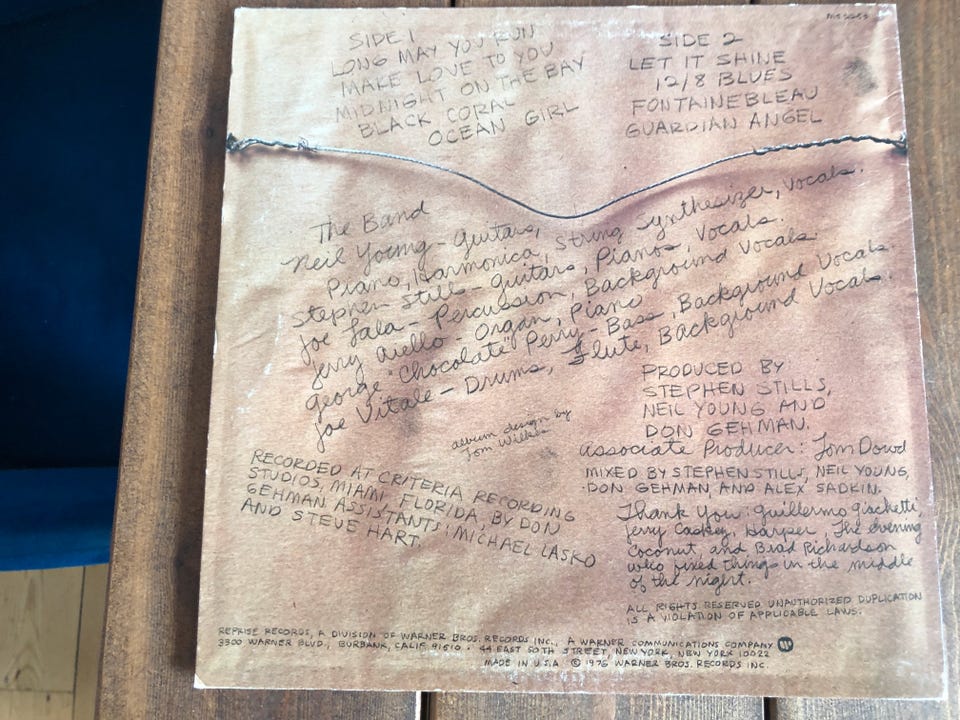 MS 2253
SIDE 1
LONG MAY YOU RUN
MAKE LOVE TO YOU
MIDNIGHT ON THE BAY
BLACK CORAL
OCEAN GIRL
SIDE 2
LET IT SHINE
12/8 BLUES
FONTAINEBLEAU
GUARDIAN ANGEL
The Band
Neil Young - Guitars,
Piano, Harmonica, String Synthesizer, Vocals.
Stephen Stills - Guitars, Pianos, Vocals.
Joe Lala - Percussion, Background Vocals.
Jerry Aiello - Organ, Piano
George "Chocolate" Perry - Bass, Background Vocals.
Joe Vitale - Drums, Flute, Background Vocals.
album design by
Tom Wilkes
RECORDED AT CRITERIA RECORDING
STUDIOS, MIAMI FLORIDA, BY DON
GEHMAN ASSISTANTS: MICHAEL LASKO
AND STEVE HART.
PRODUCED BY
STEPHEN STILLS,
NEIL YOUNG AND
DON GEHMAN.
Associate Producer: Tom Dowd
MIXED BY STEPHEN STILLS, NEIL YOUNG,
DON GEHMAN, AND ALEX SADKIN.
Thank You: Guillermo Giachetti,
Jerry Caskey, Harper, The evening
Coconut, and Brad Richardson
who fixed things in the middle
of the night.
ALL RIGHTS RESERVED UNAUTHORIZED DUPLICATION
IS A VIOLATION OF APPLICABLE LAWS.
REPRISE RECORDS, A DIVISION OF WARNER BROS. RECORDS INC., A WARNER COMMUNICATIONS COMPANY
3300 WARNER BLVD., BURBANK, CALIF. 91510 · 44 EAST 50TH STREET, NEW YORK, NEW YORK 10022
MADE IN U.S.A © 1976 WARNER BROS. RECORDS INC.